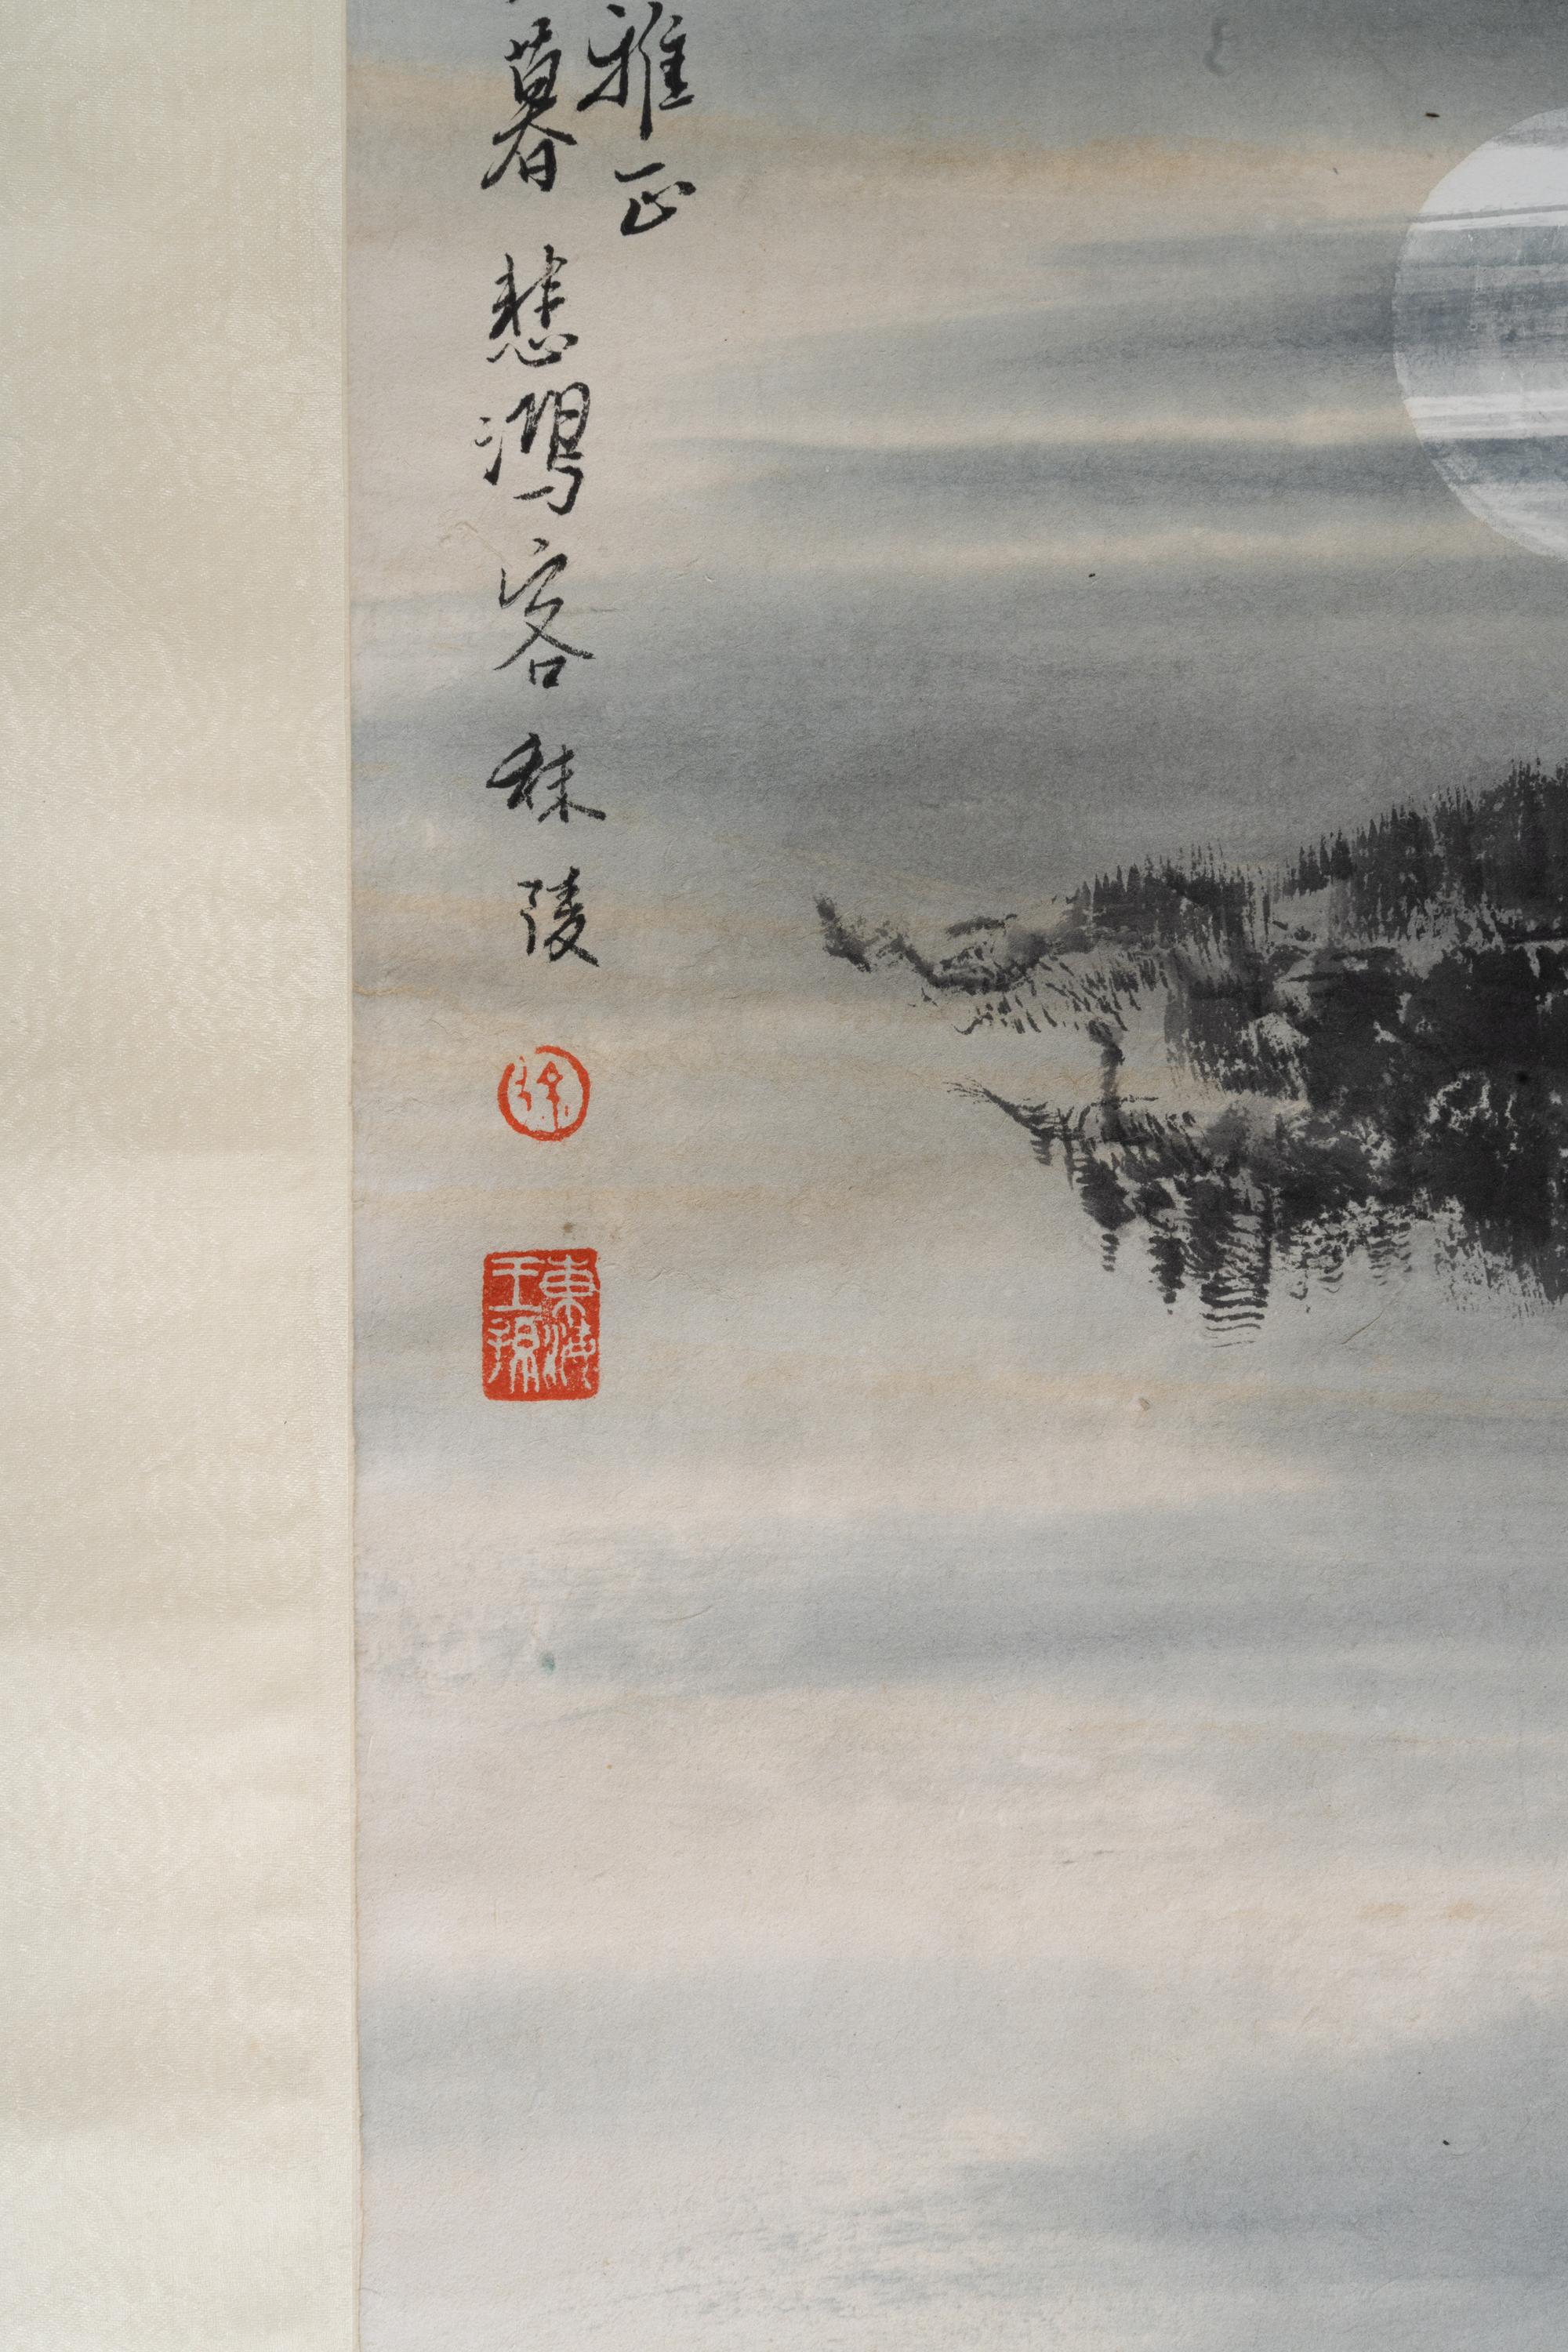 雅正
暮悲鴻客秣陵
徐
東海王孫